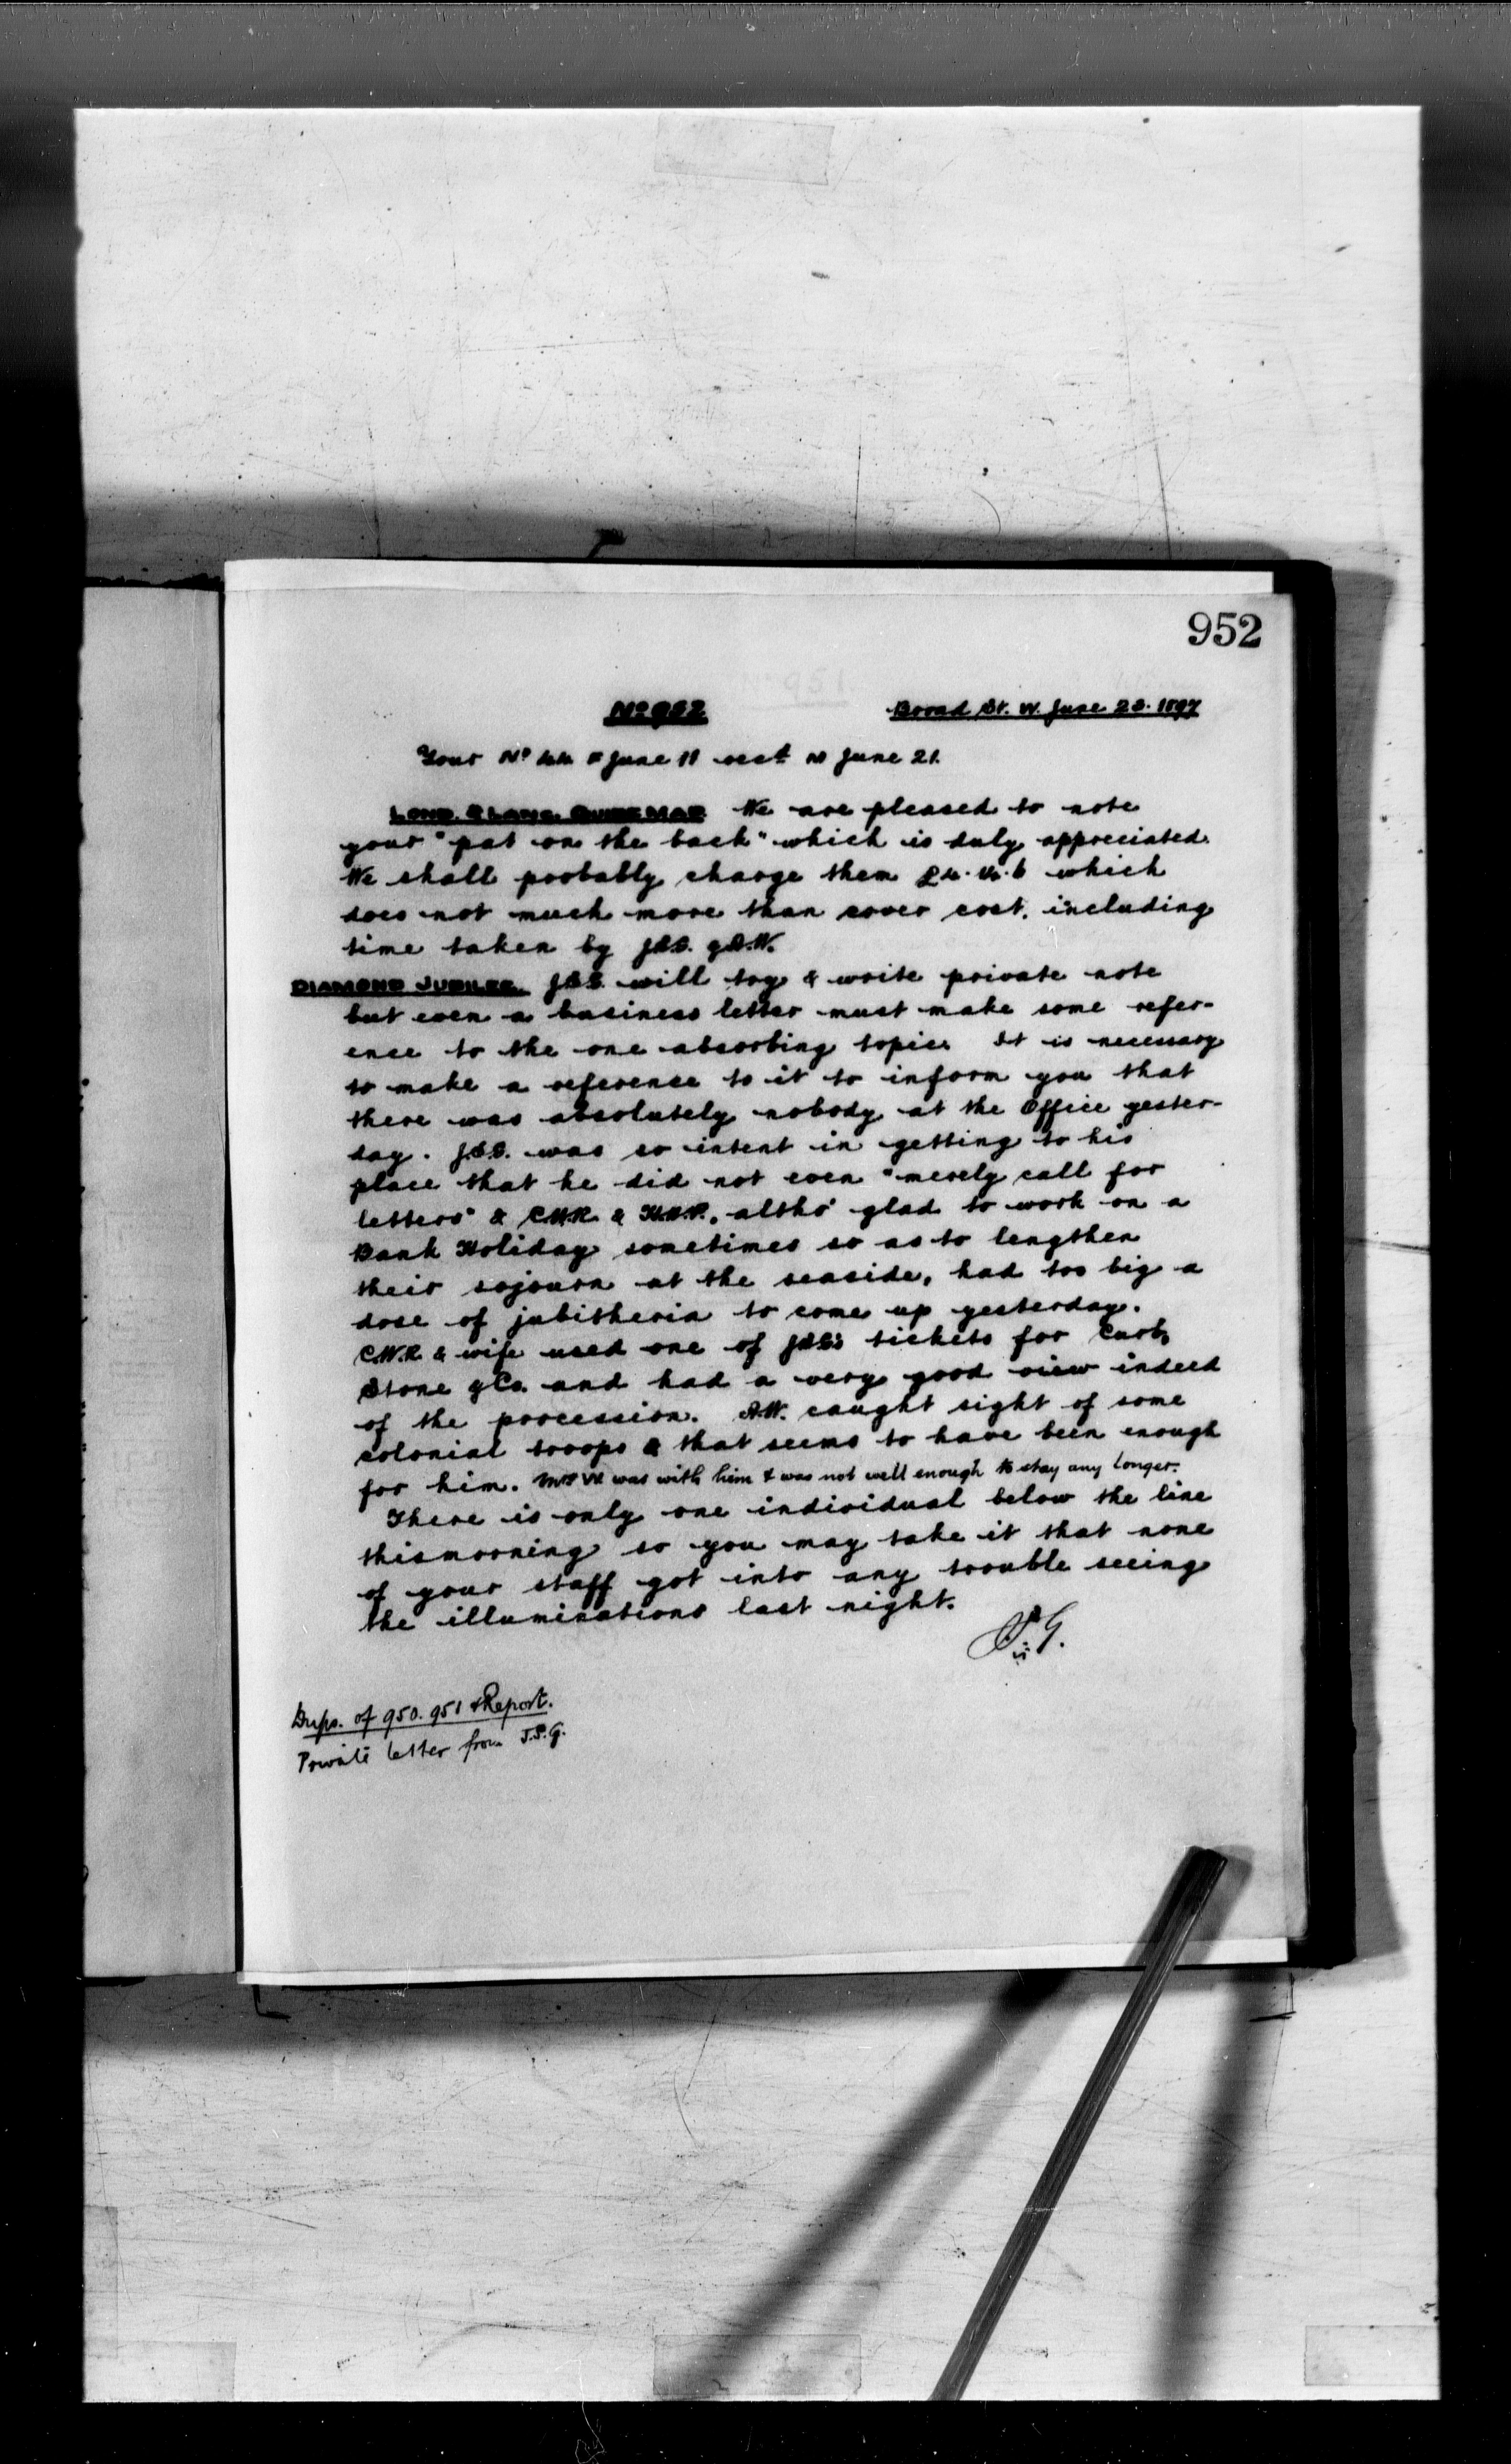 952
No 952 Broad St. W. June 23. 1897
Your No 44 of June 11 recd on June 21.
LOND. & LANC. GUIDE MAP We are pleased to note
your "pat on the back" which is duly appreciated.
We shall probably charge them £4.14.6 which
does not much more than cover cost, including
time taken by J.S.G. & A.W.
DIAMOND JUBILEE. J.S.G. will try & write private note
but even a business letter must make some refer-
ence to the one absorbing topic. It is necessary
to make a reference to it to inform you that
there was absolutely nobody at the Office yester-
day. J.S.G. was so intent in getting to his
place that he did not even "merely call for
letters" & C.W.R. & altho' glad to work on a
Bank Holiday sometimes so as to lengthen
their sojourn at the seaside, had too big a
dose of jubitheria to come up yesterday.
C.W.R. & wife used one of J.S.G's tickets for Curb,
Stone & Co. and had a very good view indeed
of the procession. A.W. caught sight of some
colonial troops & that seems to have been enough
for him. Mrs W was with him & was not well enough to stay any longer.
There is only one individual below the line
this morning so you may take it that none
of your staff got into any trouble seeing
the illuminations last night.
Dups. of 950. 951 & Report.
Private letter from J.S.G.